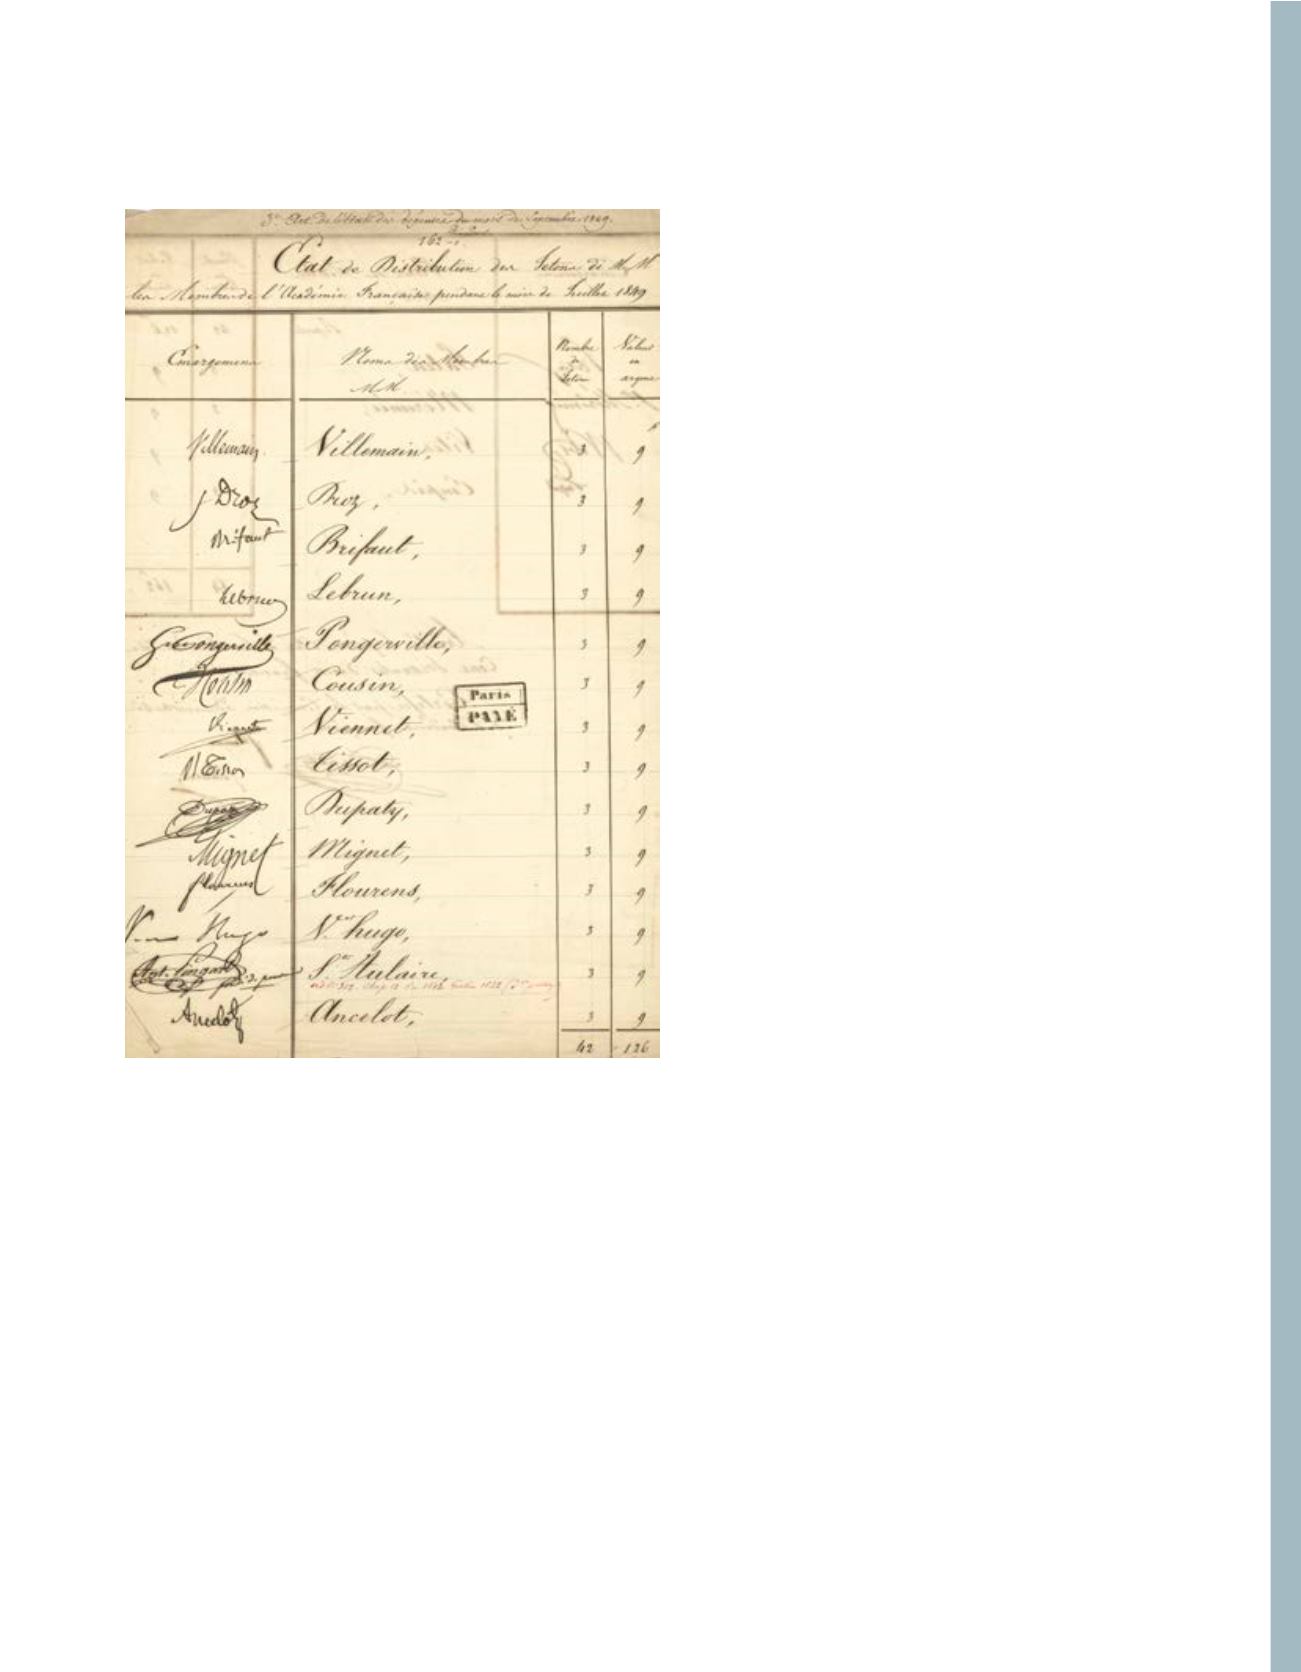 3e Art. de l'état des dépenses du mois de Septembre 1849.
162
Etat de Distribution des Jetons de MM
les Membres de l'Académie Française pendant le mois de Juillet 1849
Emargement Noms des Membres Nombre de Jetons Valeur en argent
MM
Villemain Villemain, 3 9
J Droz Droz, 3 9
Brifaut Brifaut, 3 9
Lebrun Lebrun, 3 9
Pongerville Pongerville, 3 9
Cousin, 3 9
Paris
PAYÉ
Viennet Viennet, 3 9
Tissot Tissot, 3 9
Dupaty Dupaty, 3 9
Mignet Mignet, 3 9
flourens Flourens, 3 9
V Hugo Vor hugo, 3 9
Ste Aulaire, 3 9
Ancelot Ancelot, 3 9
42 126